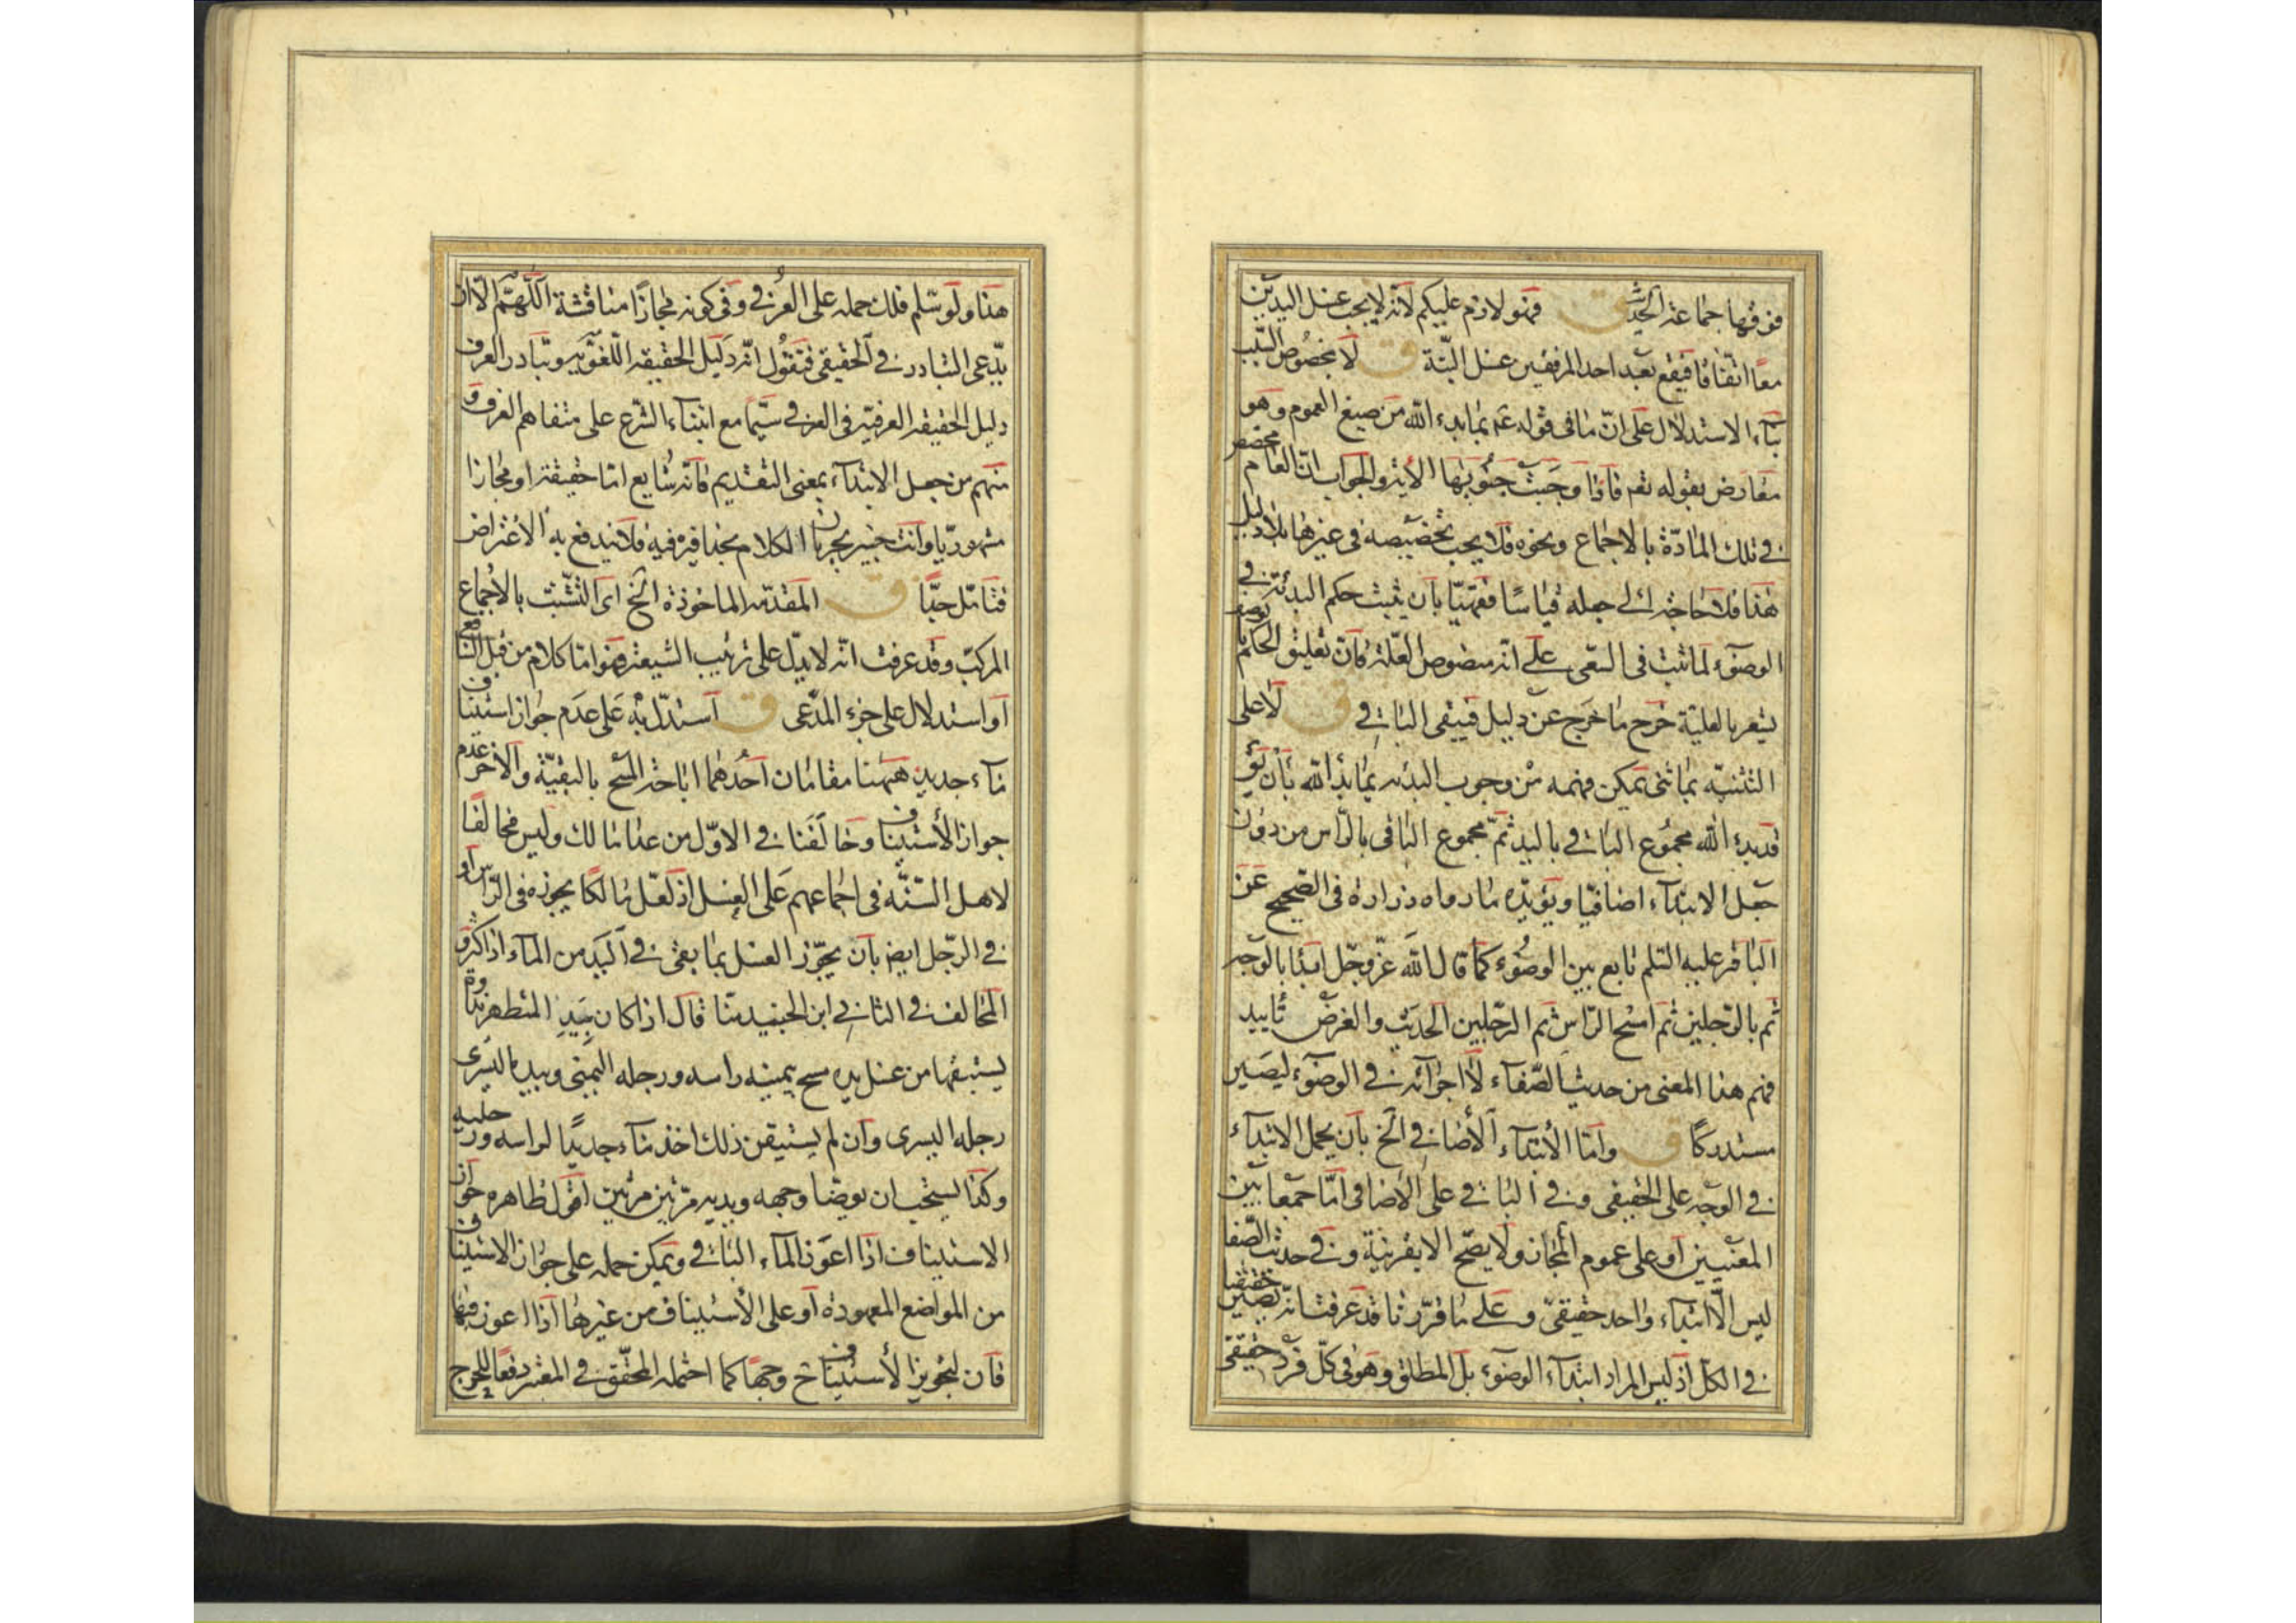 فوقها جماعة الحديث ق فهو لازم عليكم لانه لا يجب غسل اليدين
معًا اتفاقًا فيقع بعد احد المرفقين غسل البتة ق لا بخصوص السبب
بناء الاستدلال على انّ ما في قوله عم بما بدء الله من صيغ العموم وهو
معارض بقوله تعم فاذا وجبت جنوبها الاية والجواب انّ العام مخصص
في تلك المادّة بالاجماع ونحوه فلا يجب تخصيصه في غيرها بلا دليل
هذا فلا حاجة الى جعله قياسًا فقهيّا بان يثبت حكم البدئة في
الوضوء لما ثبت في السعي على انه منصوص العلّة فان تعليق الحكم بالوصف
يشعر بالعلية خرج ما خرج عن دليل فيبقى الباقي ق لا على
التثنيّه بما ثنى يمكن فهمه من وجوب البدئه بما بدأ الله بان
قد بدء الله مجموع الباقي باليد ثمّ مجموع الباقي بالراس من دون
جعل الابتداء اضافيّا ويؤيّده ما رواه زرارة في الصحيح عن
الباقر عليه السّلم تابع بين الوضوء كما قال الله عزّ وجل ابدا بالوجه
ثم بالرّجلين ثم امسح الراس ثم الرّجلين الحديث والغرض تاييد
فهم هذا المعنى من حديث الصّفاء لا اجرائه في الوضوء ليصير
مستدركًا ق وامّا الابتداء الاضافي الخ بان يحمل الابتداء
في الوجه على الحقيقي وفي الباقي على الاضافي امّا جمعا بين
المعنيين او على عموم المجاز ولا يصح الا بقرينة وفي حديث الصّفا
ليس الّا ابتداء واحد حقيقيّ وعلى ما قرّرنا قد عرفت انّه يصير حقيقيا
في الكلّ اذ ليس المراد ابتداء الوضوء بل المطلق وهو في كلّ فرد حقيقي
هذا ولو سلم فلك حمله على العرفي وفي كونه مجازًا مناقشة اللّهمّ الّا ان
يدّعى التبادر في الحقيقي فتقول انّه دليل الحقيقة اللّغويّة وتبادر العرف
دليل الحقيقة العرفيّة في العرف سيّما مع ابتناء الشّرع على متفاهم العرف و
منهم من جعل الابتداء بمعنى التقديم فانّه شايع امّا حقيقة او مجازا
مشهوريّا وانت خبير بجريان الكلام بحذافيره فيه فلا يندفع به الاعتراض
فتامّل جدًّا ق المقدّمه الماخوذة الخ اى التشبّث بالاجماع
المركبّ وقد عرفت انّه لا يدلّ على ترتيب الشيعة فهو امّا كلام من قبل المانع
او استدلال على جزء المدّعى ق استدلّ به على عدم جواز استيناف
ماء جديد ههنا مقامان احدهما اباحة المسح بالبقيّة والاخر عدم
جواز الاستيناف وخالفنا في الاوّل من عدا مالك وليس مخالفًا
لاهل السّنّة في اجماعهم على الغسل اذ لعّل مالكا يجوزه في الرّاس او
في الرّجل ايضا بان يجوّز الغسل بما بقى في اليد من الماء اذا كثر و
المخالف في الثاني ابن الجنيد منّا قال اذا كان بيد المتطهر نداوة
يستبقيها من غسل يده مسح بيمينه راسه ورجله اليمنى وبيده اليسرى
رجله اليسرى وان لم يستبق من ذلك اخذ ماء جديدًا لراسه ورجليه
وكذا يستحب ان يوضا وجهه ويديه مرّتين مرّتين اقول ظاهره جواز
الاستيناف اذا اعوز الماء الباقي ويمكن حمله على جواز الاستيناف
من المواضع المعهودة او على الاستيناف من غيرها اذا اعوز فيها
فان لتجويز الاستيناف ح وجهًا كما احتمله المحقّق في المعتبر دفعًا للحرج